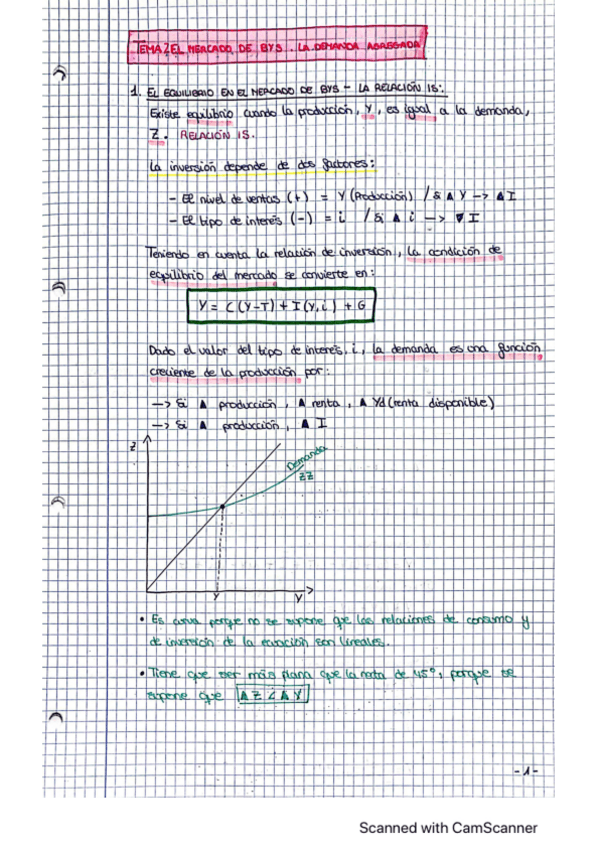 TEMA 2 EL MERCADO DE BYS. LA DEMANDA AGREGADA
1. EL EQUILIBRIO EN EL MERCADO DE BYS - LA RELACIÓN IS:
Existe equilibrio cuando la producción, Y, es igual a la demanda,
Z. RELACIÓN IS.
La inversión depende de dos factores:
- El nivel de ventas (+) = Y (Producción) / Si ▲ Y -> ▲ I
- El tipo de interés (-) = i / Si ▲ i -> ▼ I
Teniendo en cuenta la relación de inversión, la condición de
equilibrio del mercado se convierte en:
Y = C (Y-T) + I (Y, i) + G
Dado el valor del tipo de interés, i, la demanda es una función
creciente de la producción por:
-> Si ▲ producción, ▲ renta, ▲ Yd (renta disponible)
-> Si ▲ producción, ▲ I
Z
Demanda
ZZ
Y
Y
• Es curva porque no se supone que las relaciones de consumo y
de inversión de la ecuación son lineales.
• Tiene que ser más plana que la recta de 45º, porque se
supone que ▲Z < ▲Y
-1-
Scanned with CamScanner